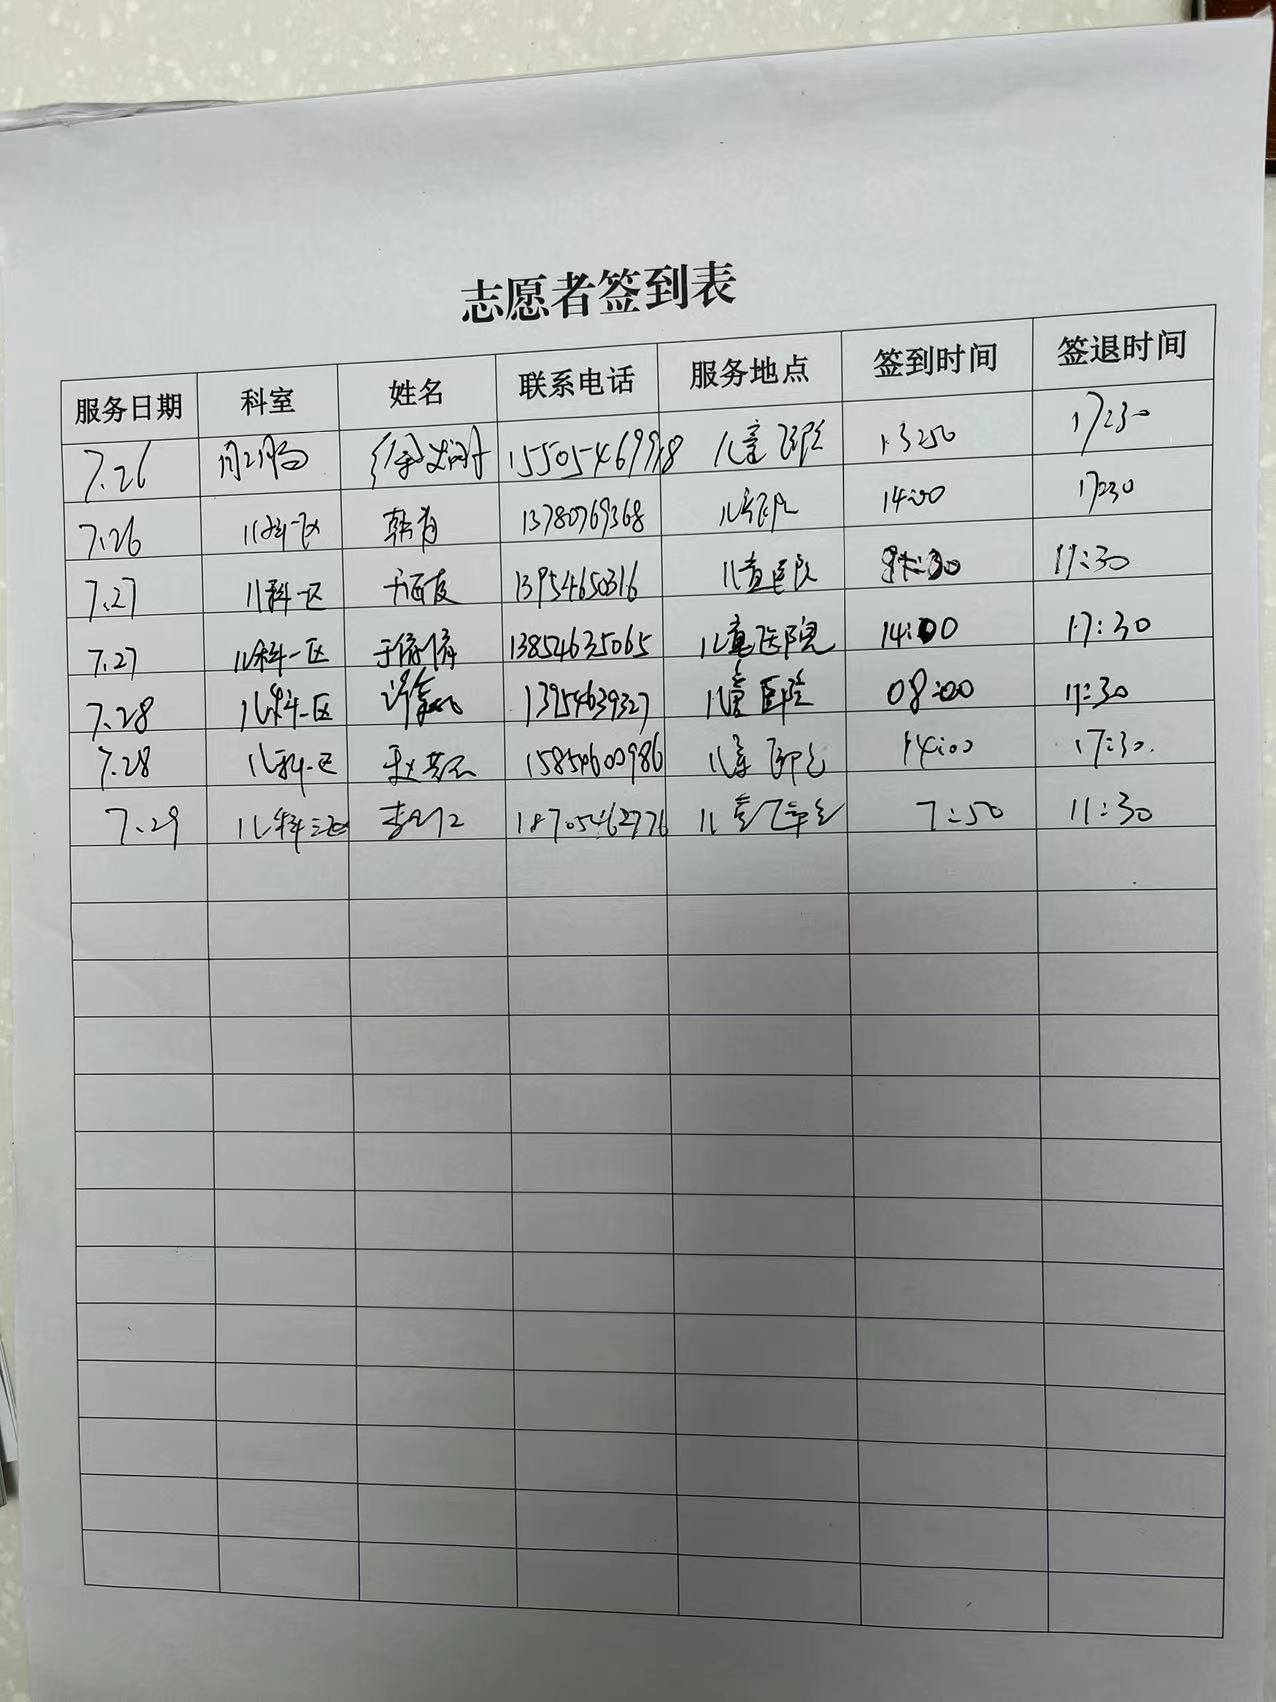 志愿者签到表
服务日期 科室 姓名 联系电话 服务地点 签到时间 签退时间
7.26 15505469998 儿童医院 13:50 17:30
7.26 儿科一区 13780769368 儿童医院 14:00 17:30
7.27 儿科一区 13954650316 儿童医院 11:30
7.27 儿科一区 于倩倩 13854635065 儿童医院 14:00 17:30
7.28 儿科一区 13954639327 儿童医院 08:00 11:30
7.28 儿科一区 15854600986 儿童医院 14:00 17:30.
7.29 儿科三区 18705462776 儿童医院 7:50 11:30